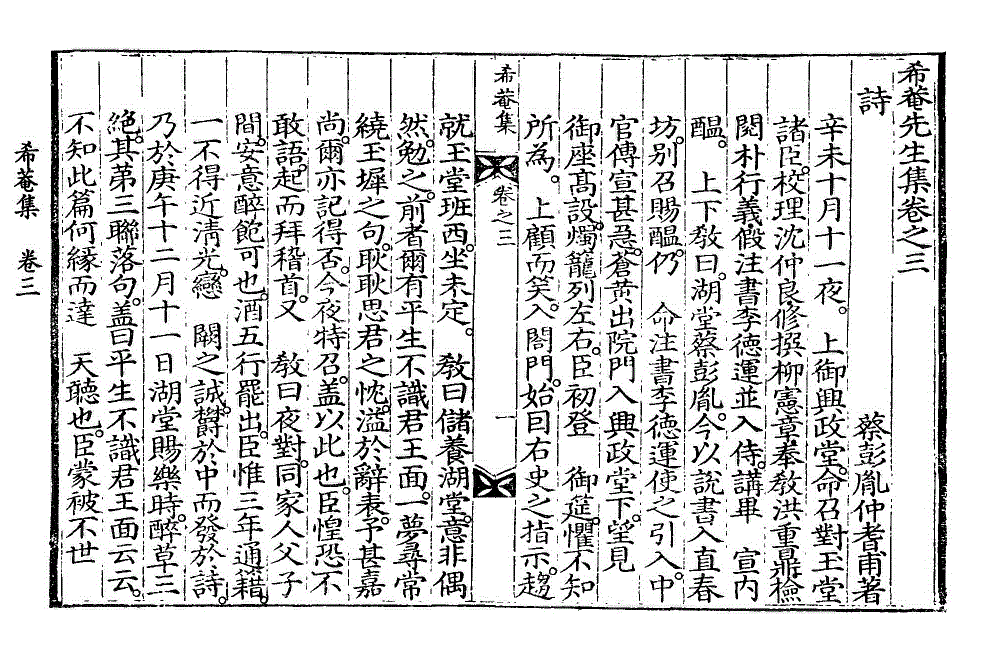 希菴先生集卷之三
詩
蔡彭胤仲耆甫著
辛未十月十一夜。上御興政堂。命召對玉堂
諸臣。校理沈仲良修撰柳憲章奉敎洪重鼎檢
閱朴行義假注書李德運並入侍。講畢 宣內
醞。 上下敎曰。湖堂蔡彭胤。今以說書入直春
坊。別召賜醞。仍 命注書李德運使之引入。中
官傳宣甚急。蒼黃出院門入興政堂下。望見
御座高設。燭籠列左右。臣初登 御筵。懼不知
所爲。 上顧而笑。入閤門。始因右史之指示。趨
希菴集 卷之三 一
就玉堂班西。坐未定。 敎曰儲養湖堂。意非偶
然。勉之。前者爾有平生不識君王面。一夢尋常
繞玉墀之句。耿耿思君之忱。溢於辭表。予甚嘉
尙。爾亦記得否。今夜特召。盖以此也。臣惶恐不
敢語。起而拜稽首。又 敎曰夜對。同家人父子
間。安意醉飽可也。酒五行罷出。臣惟三年通籍。
一不得近淸光。戀 闕之誠。欝於中而發於詩。
乃於庚午十二月十一日湖堂賜樂時。醉草三
絶。其第三聯落句。盖曰平生不識君王面云云。
不知此篇何緣而達 天聽也。臣蒙被不世
希菴集 卷三